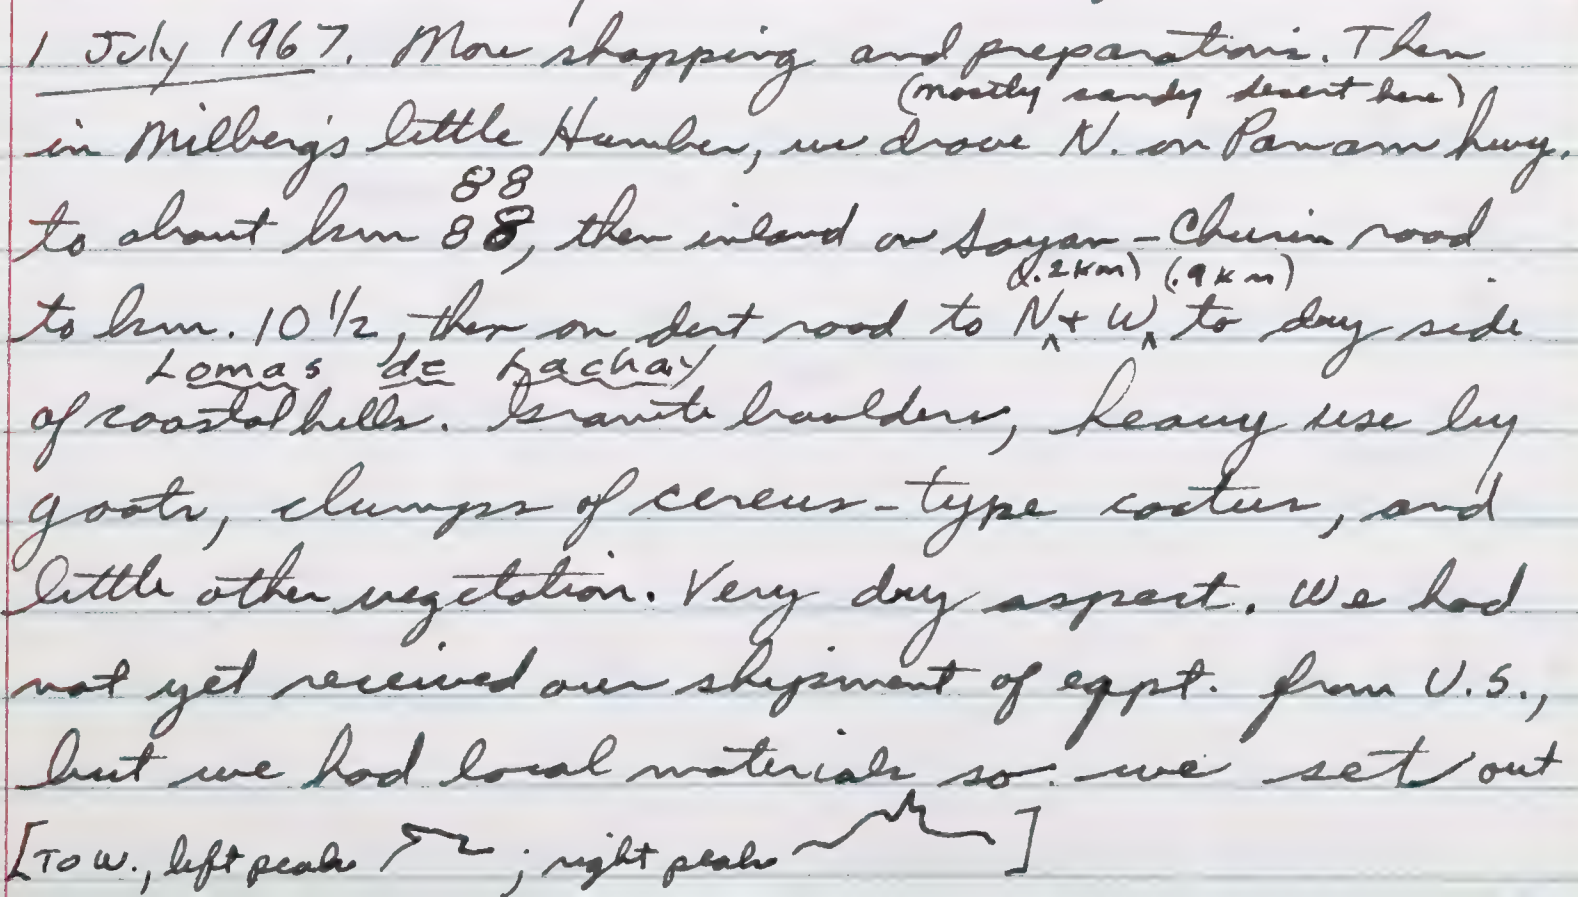 1 July 1967. More shopping and preparations. Then
(mostly sandy desert here)
in Milberg's little Humber, we drove N. on Panam hwy.
88
to about km 88, then inland on Sayan-Churin road
(.2 km) (.9 km)
to km. 10 1/2, then on dirt road to N + W, to dry side
Lomas de Lachay
of coastal hills. Granite boulders, heavy use by
goats, clumps of cereus-type cactus, and
little other vegetation. Very dry aspect. We had
not yet received our shipment of eqpt. from U.S.,
but we had local materials so we set out
[To W., left peak ; right peak ]